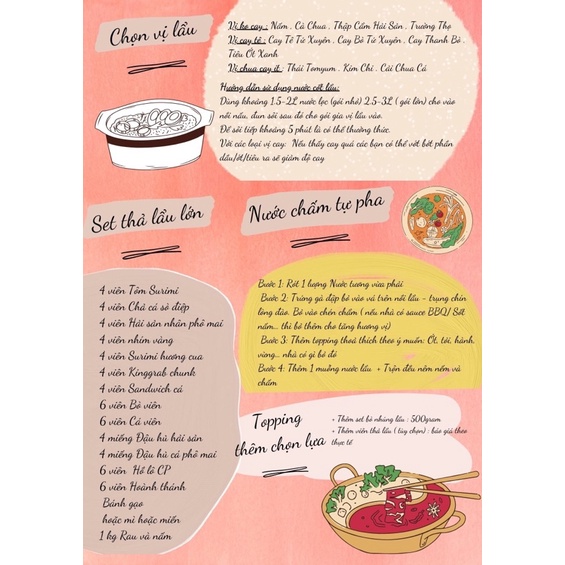 Chọn vị lẩu
Vị ko cay : Nấm . Cà Chua . Thập Cẩm Hải Sản . Trường Thọ
Vị cay tê : Cay Tê Tứ Xuyên . Cay Bò Tứ Xuyên . Cay Thanh Bò .
Tiêu Ớt Xanh
Vị chua cay ít : Thái Tomyum . Kim Chi . Cải Chua Cá
Hướng dẫn sử dụng nước cốt lẩu:
Dùng khoảng 1.5-2L nước lọc (gói nhỏ) 2.5-3L ( gói lớn) cho vào
nồi nấu, đun sôi sau đó cho gói gia vị lẩu vào.
Để sôi tiếp khoảng 5 phút là có thể thưởng thức.
Với các loại vị cay: Nếu thấy cay quá các bạn có thể vớt bớt phần
dầu/ớt/tiêu ra sẽ giảm độ cay
Set thả lẩu lớn
4 viên Tôm Surimi
4 viên Chả cá sò điệp
4 viên Hải sản nhân phô mai
4 viên nhím vàng
4 viên Surimi hương cua
4 viên Kinggrab chunk
4 viên Sandwich cá
6 viên Bò viên
6 viên Cá viên
4 miếng Đậu hũ hải sản
4 miếng Đậu hũ cá phô mai
6 viên Hồ lô CP
6 viên Hoành thánh
Bánh gạo
hoặc mì hoặc miến
1 kg Rau và nấm
Nước chấm tự pha
Bước 1: Rót 1 lượng Nước tương vừa phải
Bước 2: Trứng gà đập bỏ vào vá trên nồi lẩu - trụng chín
lòng đào. Bỏ vào chén chấm ( nếu nhà có sauce BBQ/ Sốt
nấm... thì bỏ thêm cho tăng hương vị)
Bước 3: Thêm topping thoả thích theo ý muốn: Ớt, tỏi, hành,
vừng... nhà có gì bỏ đó
Bước 4: Thêm 1 muỗng nước lẩu + Trộn đều nêm nếm và
chấm
Topping
thêm chọn lựa
+ Thêm set bò nhúng lẩu : 500gram
+ Thêm viên thả lẩu ( tùy chọn) : báo giá theo
thực tế